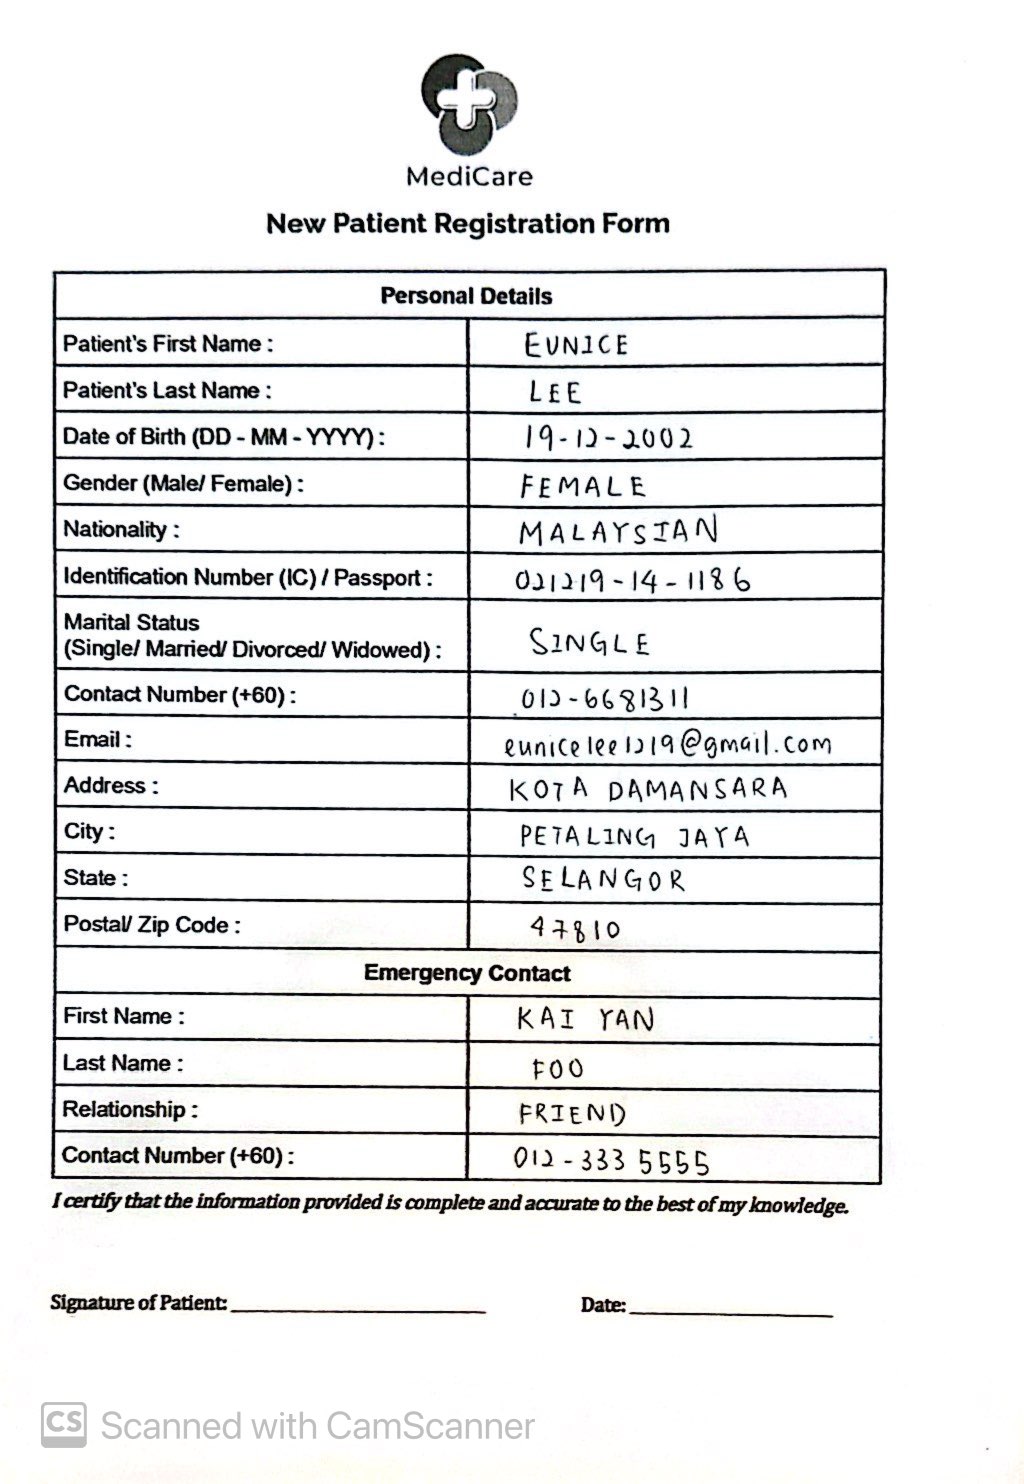 MediCare
New Patient Registration Form
Personal Details
Patient's First Name : EUNICE
Patient's Last Name : LEE
Date of Birth (DD - MM - YYYY) : 19-12-2002
Gender (Male/ Female) : FEMALE
Nationality : MALAYSIAN
Identification Number (IC) / Passport : 021219-14-1186
Marital Status
(Single/ Married/ Divorced/ Widowed) : SINGLE
Contact Number (+60) : 012-6681311
Email : eunicelee1219@gmail.com
Address : KOTA DAMANSARA
City : PETALING JAYA
State : SELANGOR
Postal/ Zip Code : 47810
Emergency Contact
First Name : KAI YAN
Last Name : FOO
Relationship : FRIEND
Contact Number (+60) : 012-333 5555
I certify that the information provided is complete and accurate to the best of my knowledge.
Signature of Patient: Date:
CS Scanned with CamScanner